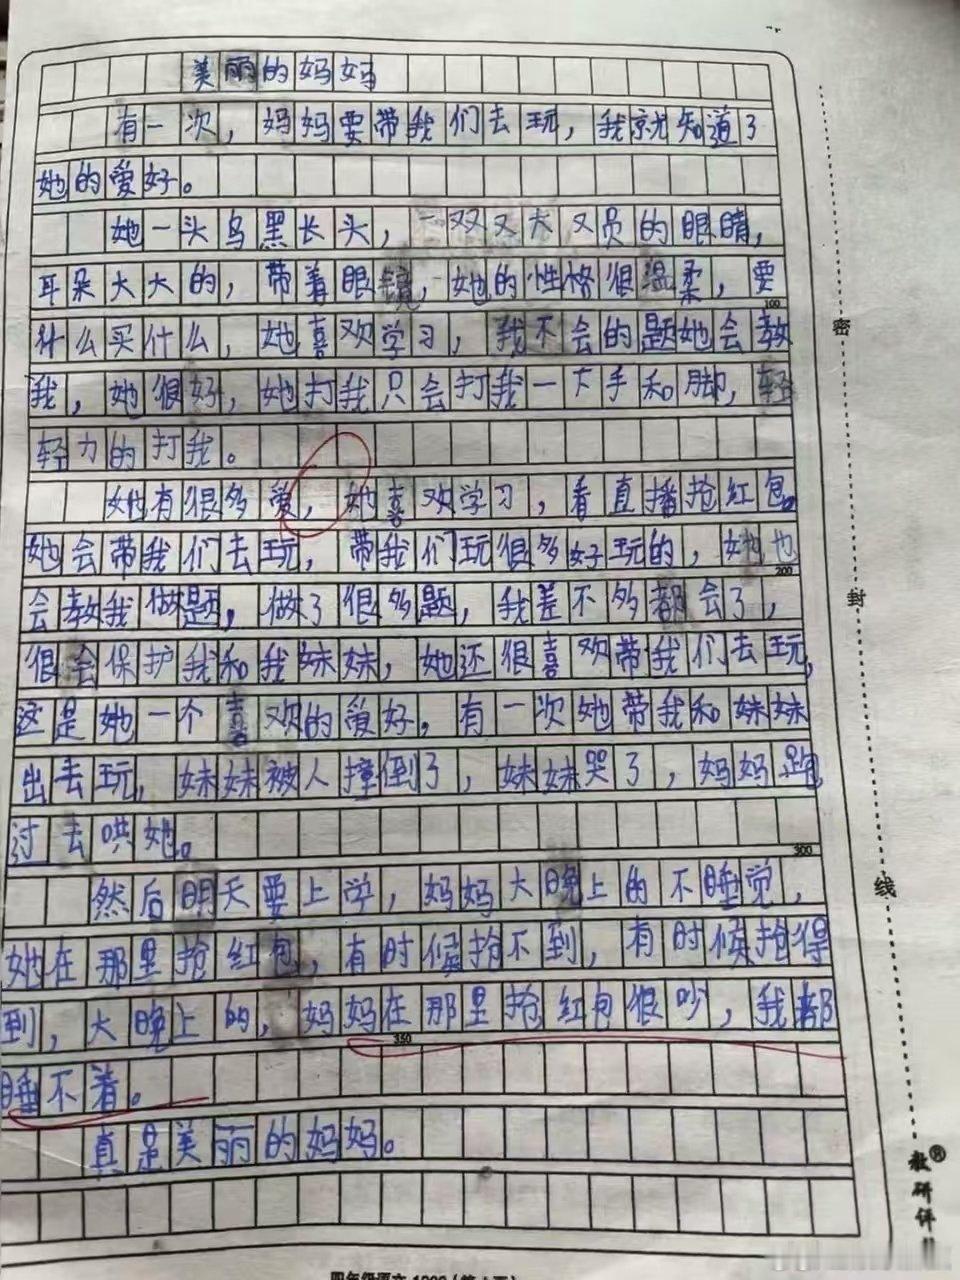 美丽的妈妈
有一次，妈妈要带我们去玩，我就知道了
她的爱好。
她一头乌黑长头，一双又大又员的眼睛，
耳朵大大的，带着眼镜，她的性格很温柔，要
什么买什么，她喜欢学习，我不会的题她会教
100
我，她很好，她打我只会打我一下手和脚，轻
轻力的打我。
她有很多爱，她喜欢学习，看直播抢红包。
她会带我们去玩，带我们玩很多好玩的，她也
200
会教我做题，做了很多题，我差不多都会了，
很会保护我和我妹妹，她还很喜欢带我们去玩，
这是她一个喜欢的爱好。有一次她带我和妹妹
出去玩，妹妹被人撞倒了，妹妹哭了，妈妈跑
过去哄她。
300
然后明天要上学，妈妈大晚上的不睡觉，
她在那里抢红包，有时候抢不到，有时候抢得
到，大晚上的，妈妈在那里抢红包很吵，我都
350
睡不着。
真是美丽的妈妈。
密
封
线
教研评
四年级语文